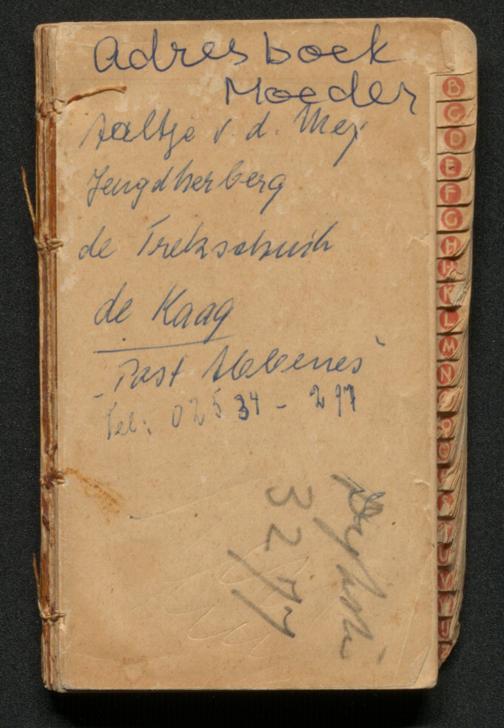 Adresboek
Moeder
Aaltje v. d. Mey
Jeugdherberg
de Trekschuit
de Kaag
Post Abbenes
Tel: 02534 - 297
3277
B
C
D
E
F
G
H
K
L
M
N
O